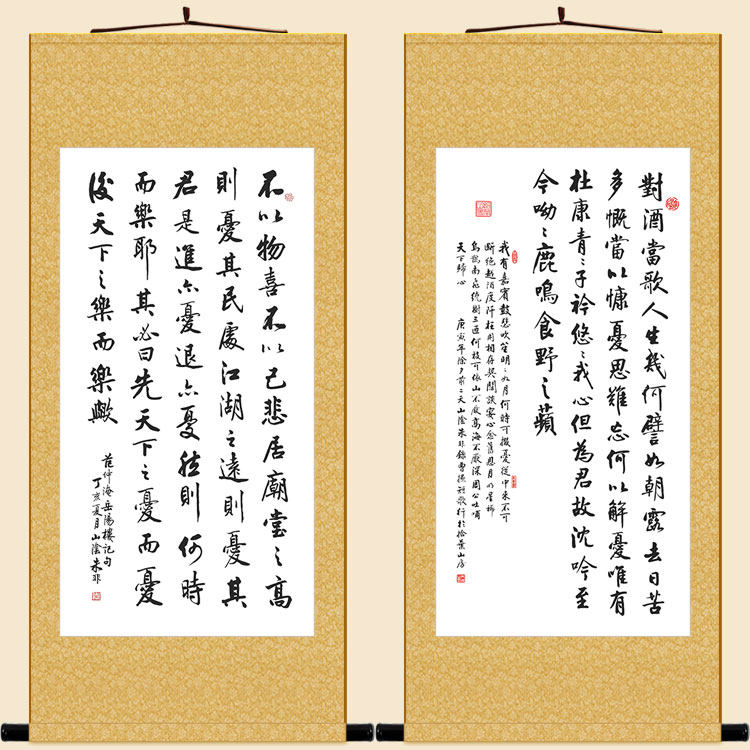 不以物喜不以己悲居廟堂之高
則憂其民處江湖之遠則憂其
君是進亦憂退亦憂然則何時
而樂耶其必曰先天下之憂而憂
後天下之樂而樂歟
范仲淹岳陽樓記句
丁亥夏月山陰朱非
對酒當歌人生幾何譬如朝露去日苦
多慨當以慷憂思難忘何以解憂唯有
杜康青々子衿悠々我心但為君故沈吟至
今呦々鹿鳴食野之蘋
我有嘉賓鼓瑟吹笙明々如月何時可掇憂從中來不可
斷絕越陌度阡枉用相存契闊談讌心念舊恩月明星稀
烏鵲南飛繞樹三匝何枝可依山不厭高海不厭深周公吐哺
天下歸心 庚寅年除夕前二天山陰朱非錄曹操短歌行於拾葉山房